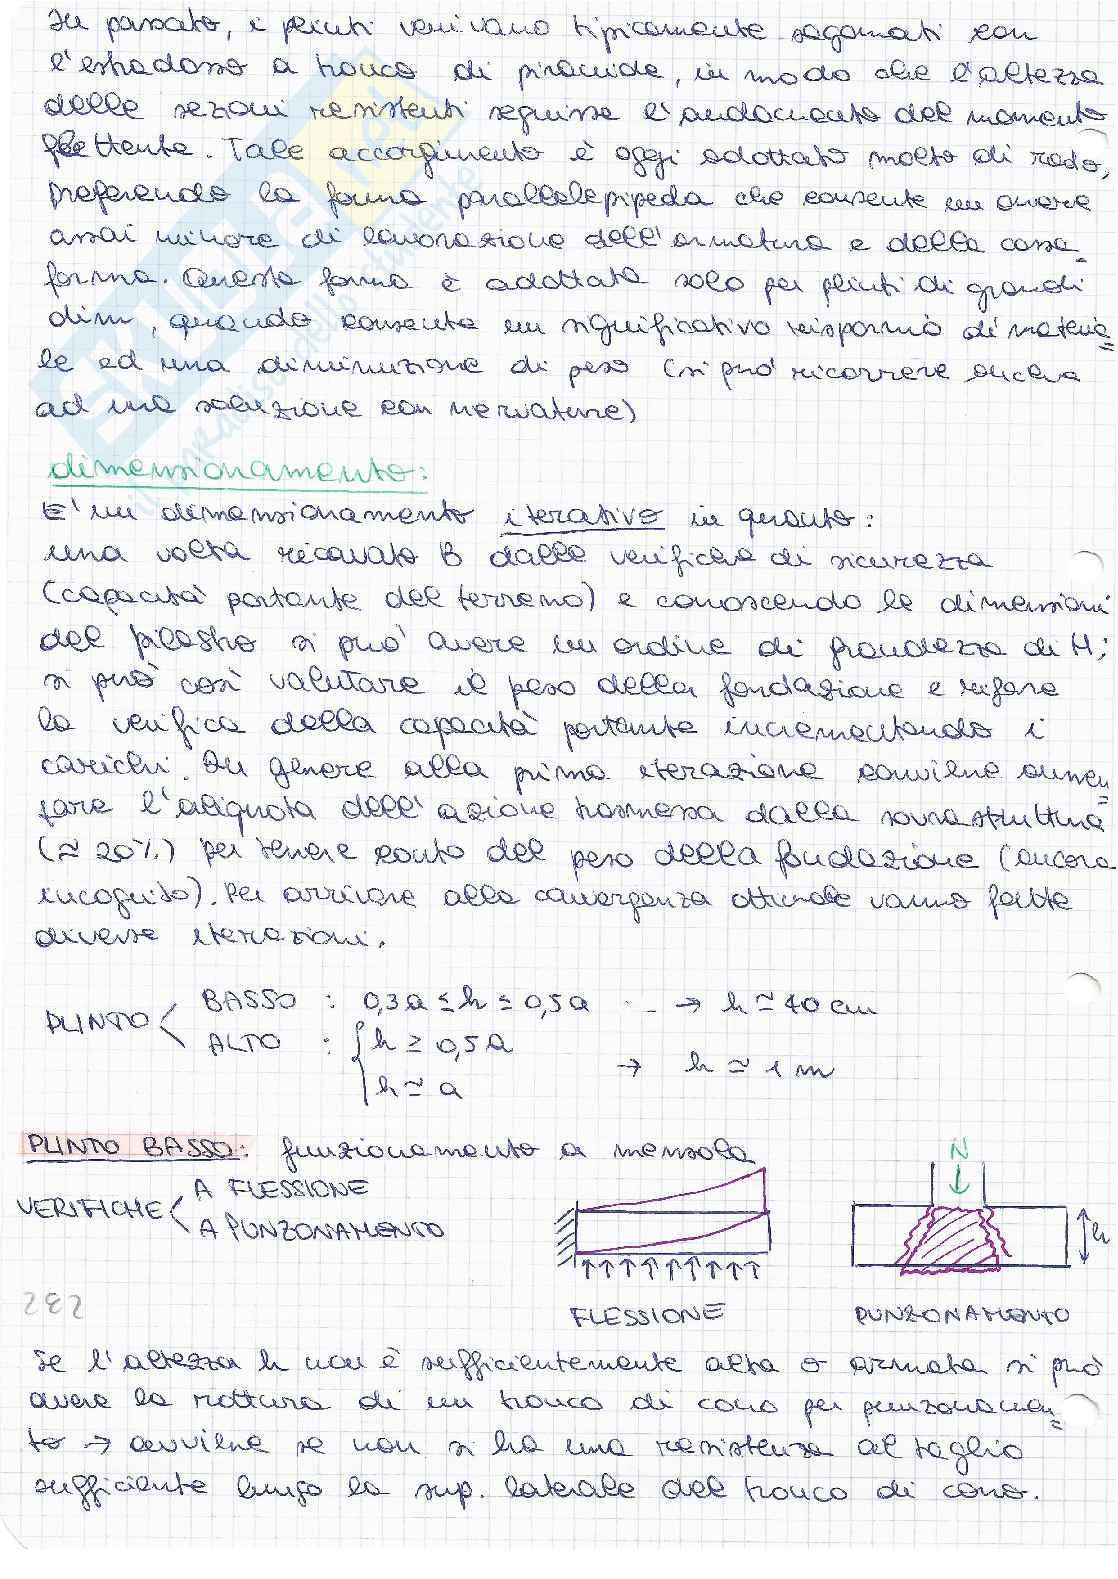 In passato, i plinti venivano tipicamente sagomati con
l'estradosso a tronco di piramide, in modo che l'altezza
delle sezioni resistenti seguisse l'andamento del momento
flettente. Tale accorgimento è oggi adottato molto di rado,
preferendo la forma parallelepipeda che consente un onere
assai minore di lavorazione dell'armatura e della cassa=
forma. Questa forma è adottata solo per plinti di grandi
dim, quando consente un significativo risparmio di materia=
le ed una diminuzione di peso (si può ricorrere anche
ad una soluzione con nervature)
dimensionamento:
E' un dimensionamento iterativo in quanto:
una volta ricavato B dalle verifiche di sicurezza
(capacità portante del terreno) e conoscendo le dimensioni
del pilastro si può avere un ordine di grandezza di H;
si può così valutare il peso della fondazione e rifare
la verifica della capacità portante incrementando i
carichi. In genere alla prima iterazione conviene aumen=
tare l'aliquota dell'azione trasmessa dalla sovrastruttura
(≈ 20%) per tenere conto del peso della fondazione (ancora
incognito). Per arrivare alla convergenza ottimale vanno fatte
diverse iterazioni.
PLINTO < BASSO : 0,3a ≤ h ≤ 0,5a → h ≃ 40 cm
ALTO : { h ≥ 0,5a
h ≃ a → h ≃ 1 m
PLINTO BASSO: funzionamento a mensola
VERIFICHE < A FLESSIONE
A PUNZONAMENTO
N
h
FLESSIONE PUNZONAMENTO
282
Se l'altezza h non è sufficientemente alta o armata si può
avere la rottura di un tronco di cono per punzonamen=
to → avviene se non si ha una resistenza al taglio
sufficiente lungo la sup. laterale del tronco di cono.